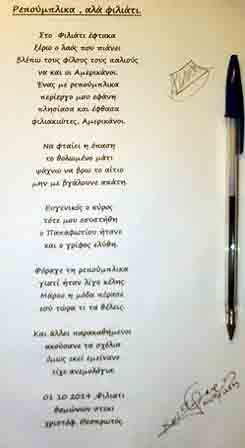 Ρεπούμπλικα , αλά φιλιάτι
Στο Φιλιάτι έφτακα
ξέρω ο λαός που πιάνει
βλέπω τους φίλους τους παλιούς
να και οι Αμερικάνοι.
Ένας με ρεπούμπλικα
περίεργο μου εφάνη
πλησίασα και έφθασα
φιλιακιώτες, Αμερικάνοι.
Να φταίει η έπαση
το θολωμένο μάτι
ψάχνω να βρω το αίτιο
μην με βγάλουνε απάτη.
Ευγενικός ο κύρος
τότε μου εσυστήθη
ο Παπαφωτίου ήτανε
και ο γρίφος ελύθη.
Φόραγε τη ρεπούμπλικα
γιατί ήταν λίγο κέλης
Μάρσο η μόδα πέρασε
εσύ τώρα τι θα θέλεις.
Και άλλοι παρακαθήμενοι
ακούσανε τα σχόλια
όμως εκεί εμείνανε
είχε ανεμολόγια.
01 10 2014 ,Φιλιατι
θαμώνων στέκι
χριστόφ. Θεσπρωτός.